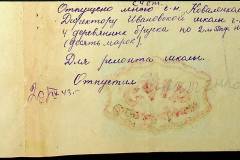 Счет.
Отпущено мною г-н. Коваленко
Директору Ивановской школы г-
4 деревянных бруска по 2 м
(десять марок).
Для ремонта школы.
Отпустил
20/IV 43.